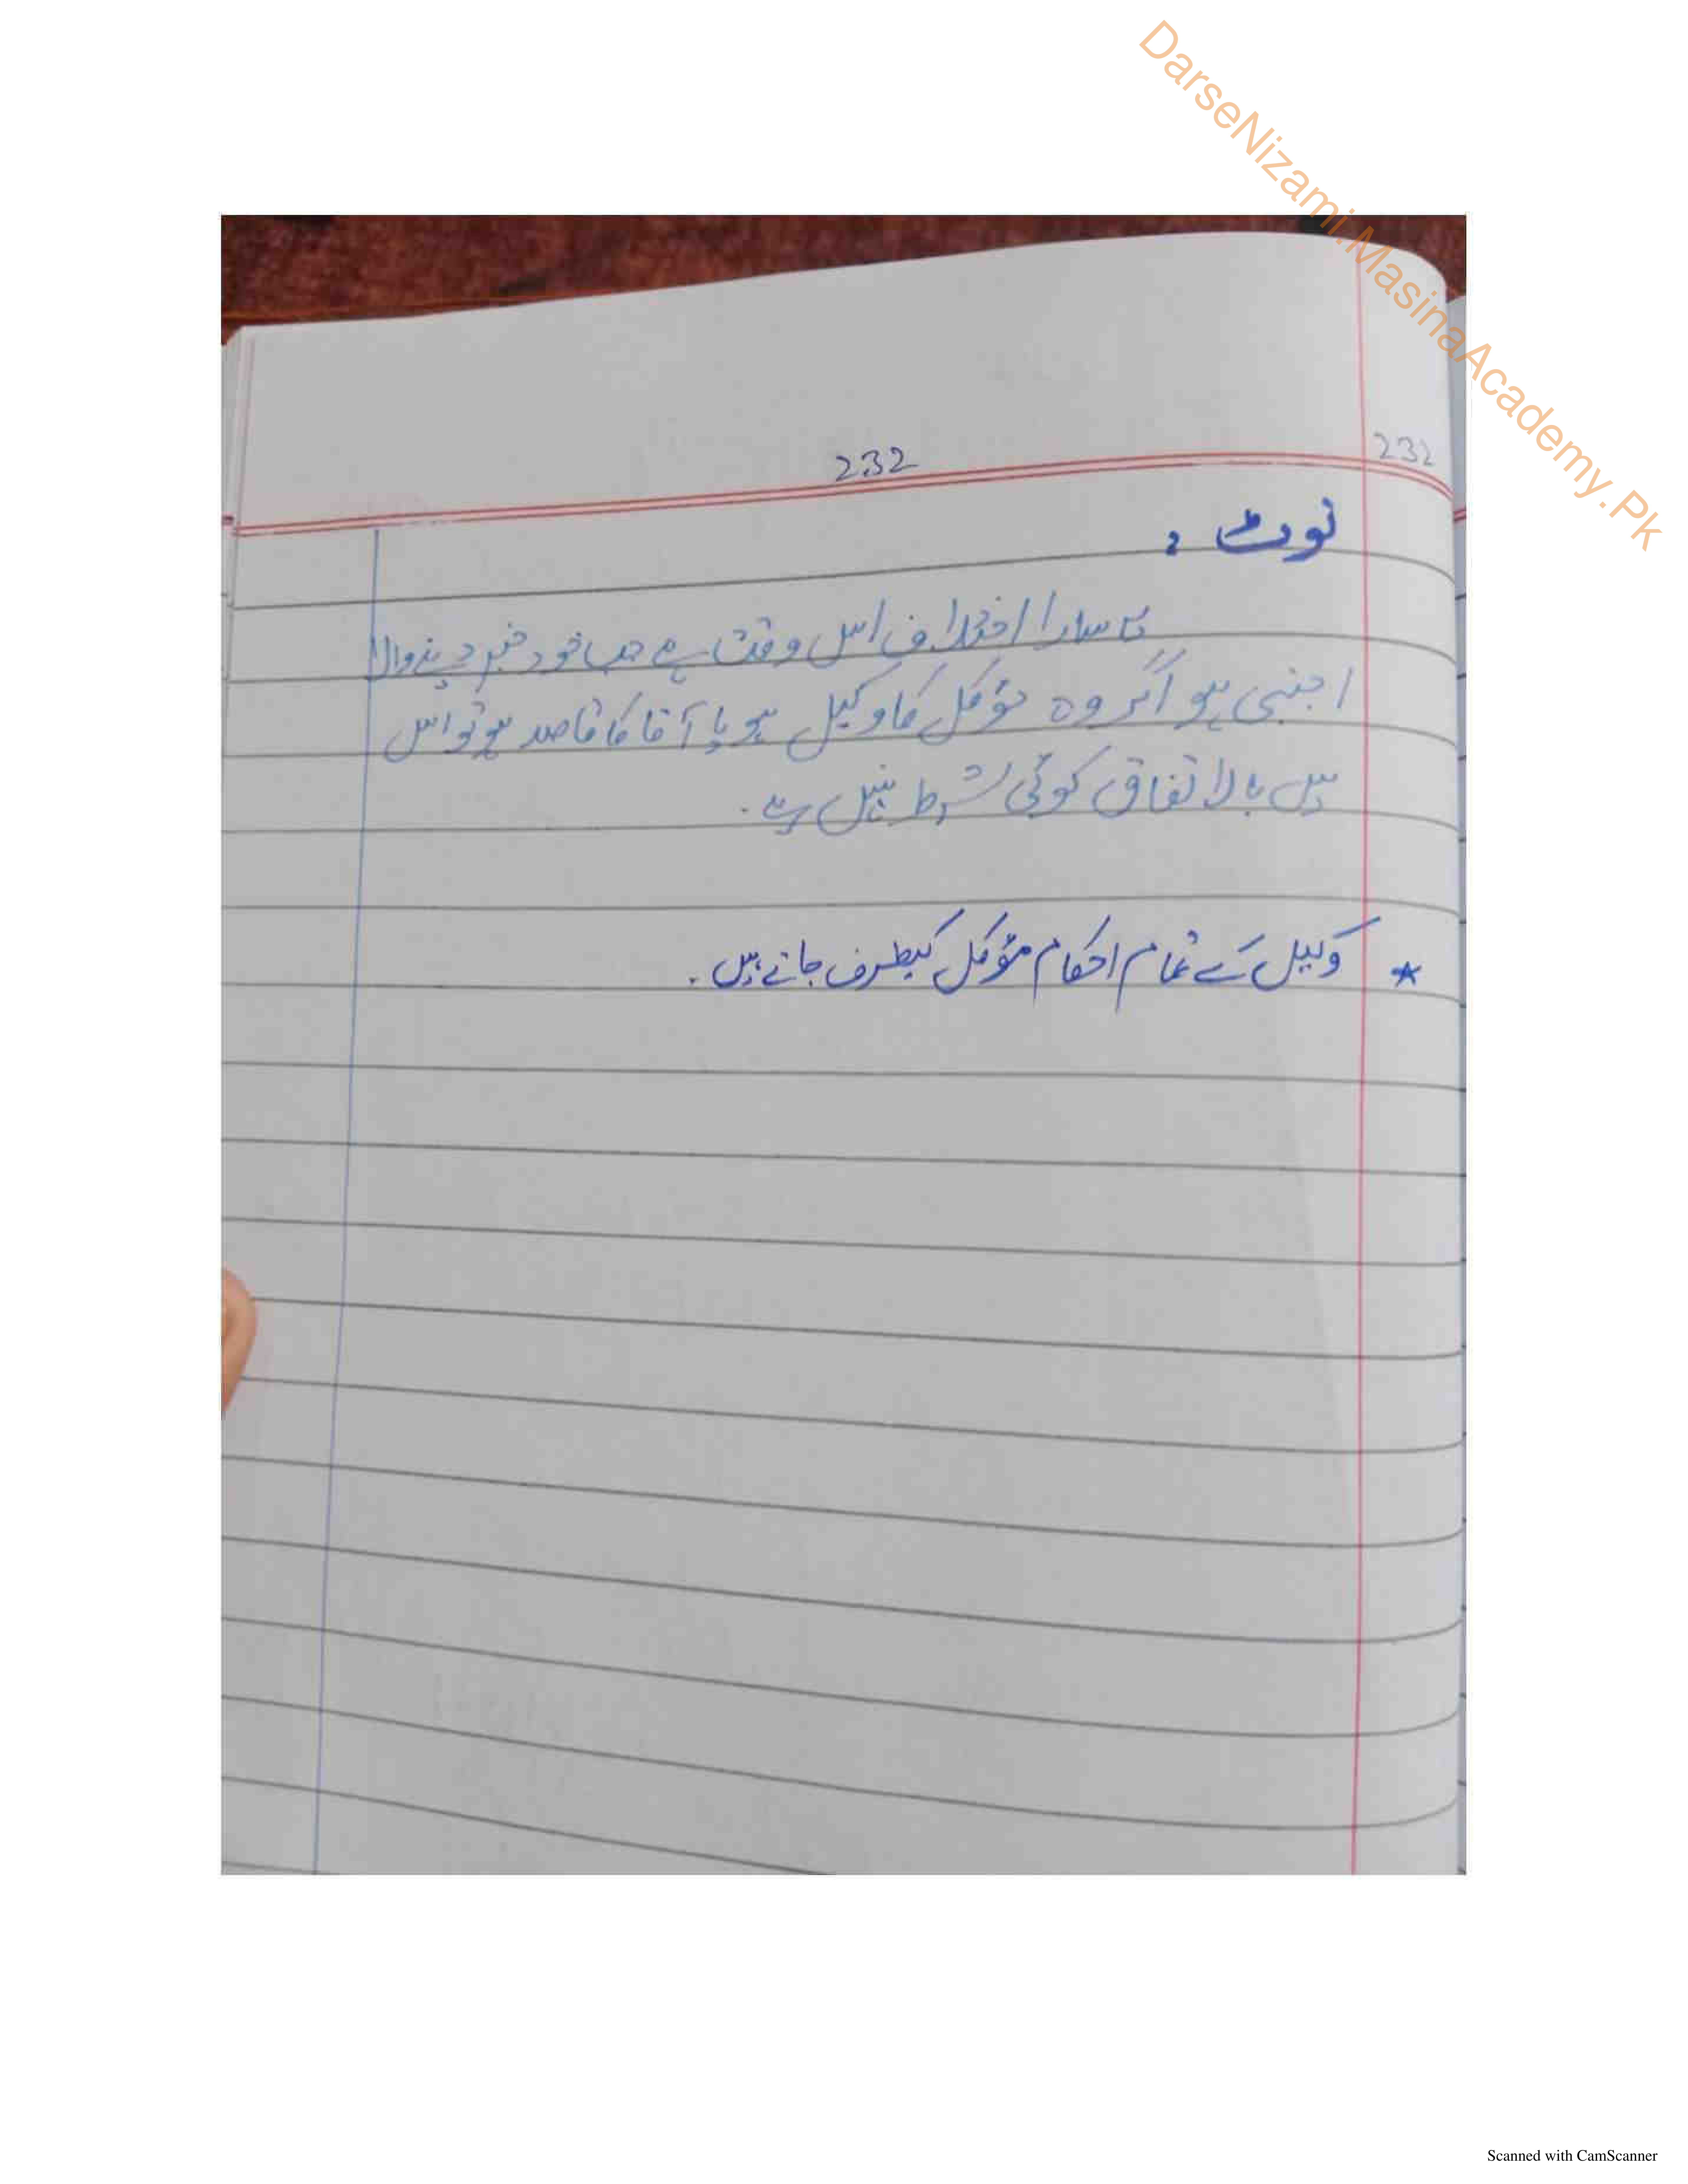 DarseNizami.MasinaAcademy.Pk
232
232
نوٹ :
یہ سارا اختلاف اس وقت ہے جب خود خبر دینے والا
اجنبی ہو اگر وہ مؤکل کا وکیل ہو یا آقا کا قاصد ہو تو اس
میں بالاتفاق کوئی شرط نہیں ہے.
* وکیل کے تمام احکام مؤکل کیطرف جاتے ہیں.
Scanned with CamScanner